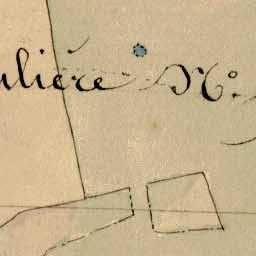 ulière N°.